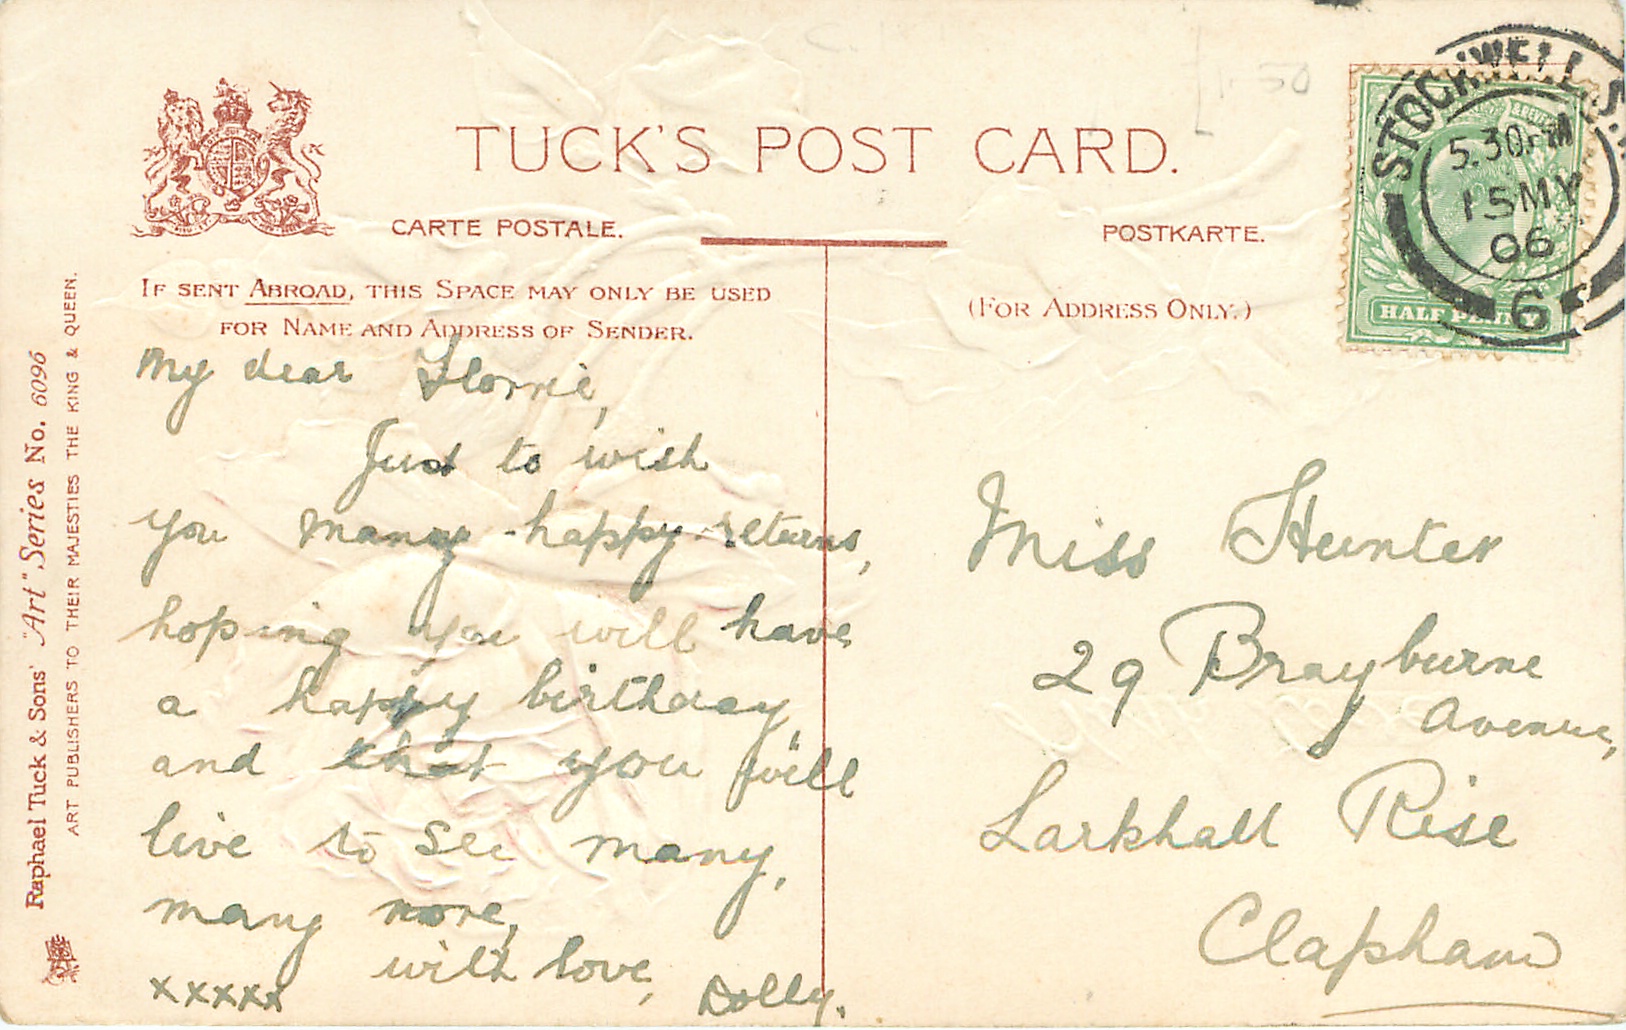 TUCK'S POST CARD.
CARTE POSTALE.
POSTKARTE.
IF SENT ABROAD, THIS SPACE MAY ONLY BE USED
FOR NAME AND ADDRESS OF SENDER.
(FOR ADDRESS ONLY.)
My dear Florrie,
Just to wish
you many happy returns,
hoping you will have
a happy birthday,
and that you will
live to see many,
many more,
with love,
xxxxx Dolly.
Miss Hunter
29 Brayburne
Avenue,
Larkhall Rise
Clapham
Raphael Tuck & Sons' "Art" Series No. 6096
ART PUBLISHERS TO THEIR MAJESTIES THE KING & QUEEN.
STOCKWELL S.
5.30 PM
15 MY
06
6
HALF PENNY
1-50